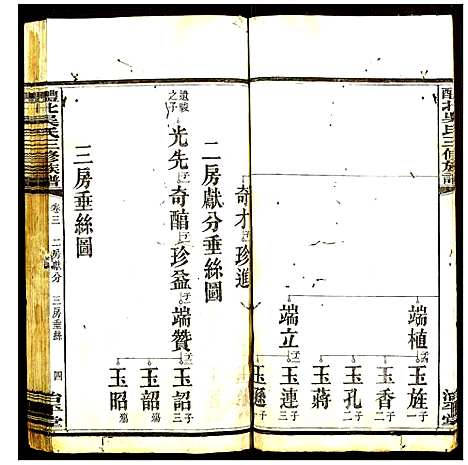 醴北吳氏三修族譜
端植
玉旌
玉香
玉孔
玉蔣
端立
玉連
玉遜
奇才 珍進
二房獻分垂絲圖
遺駿之子
光先 奇醕 珍益 端贊
玉詔
玉韶
玉昭
三房垂絲圖
醴北吳氏三修族譜
卷三 二房獻分 三房垂絲
四